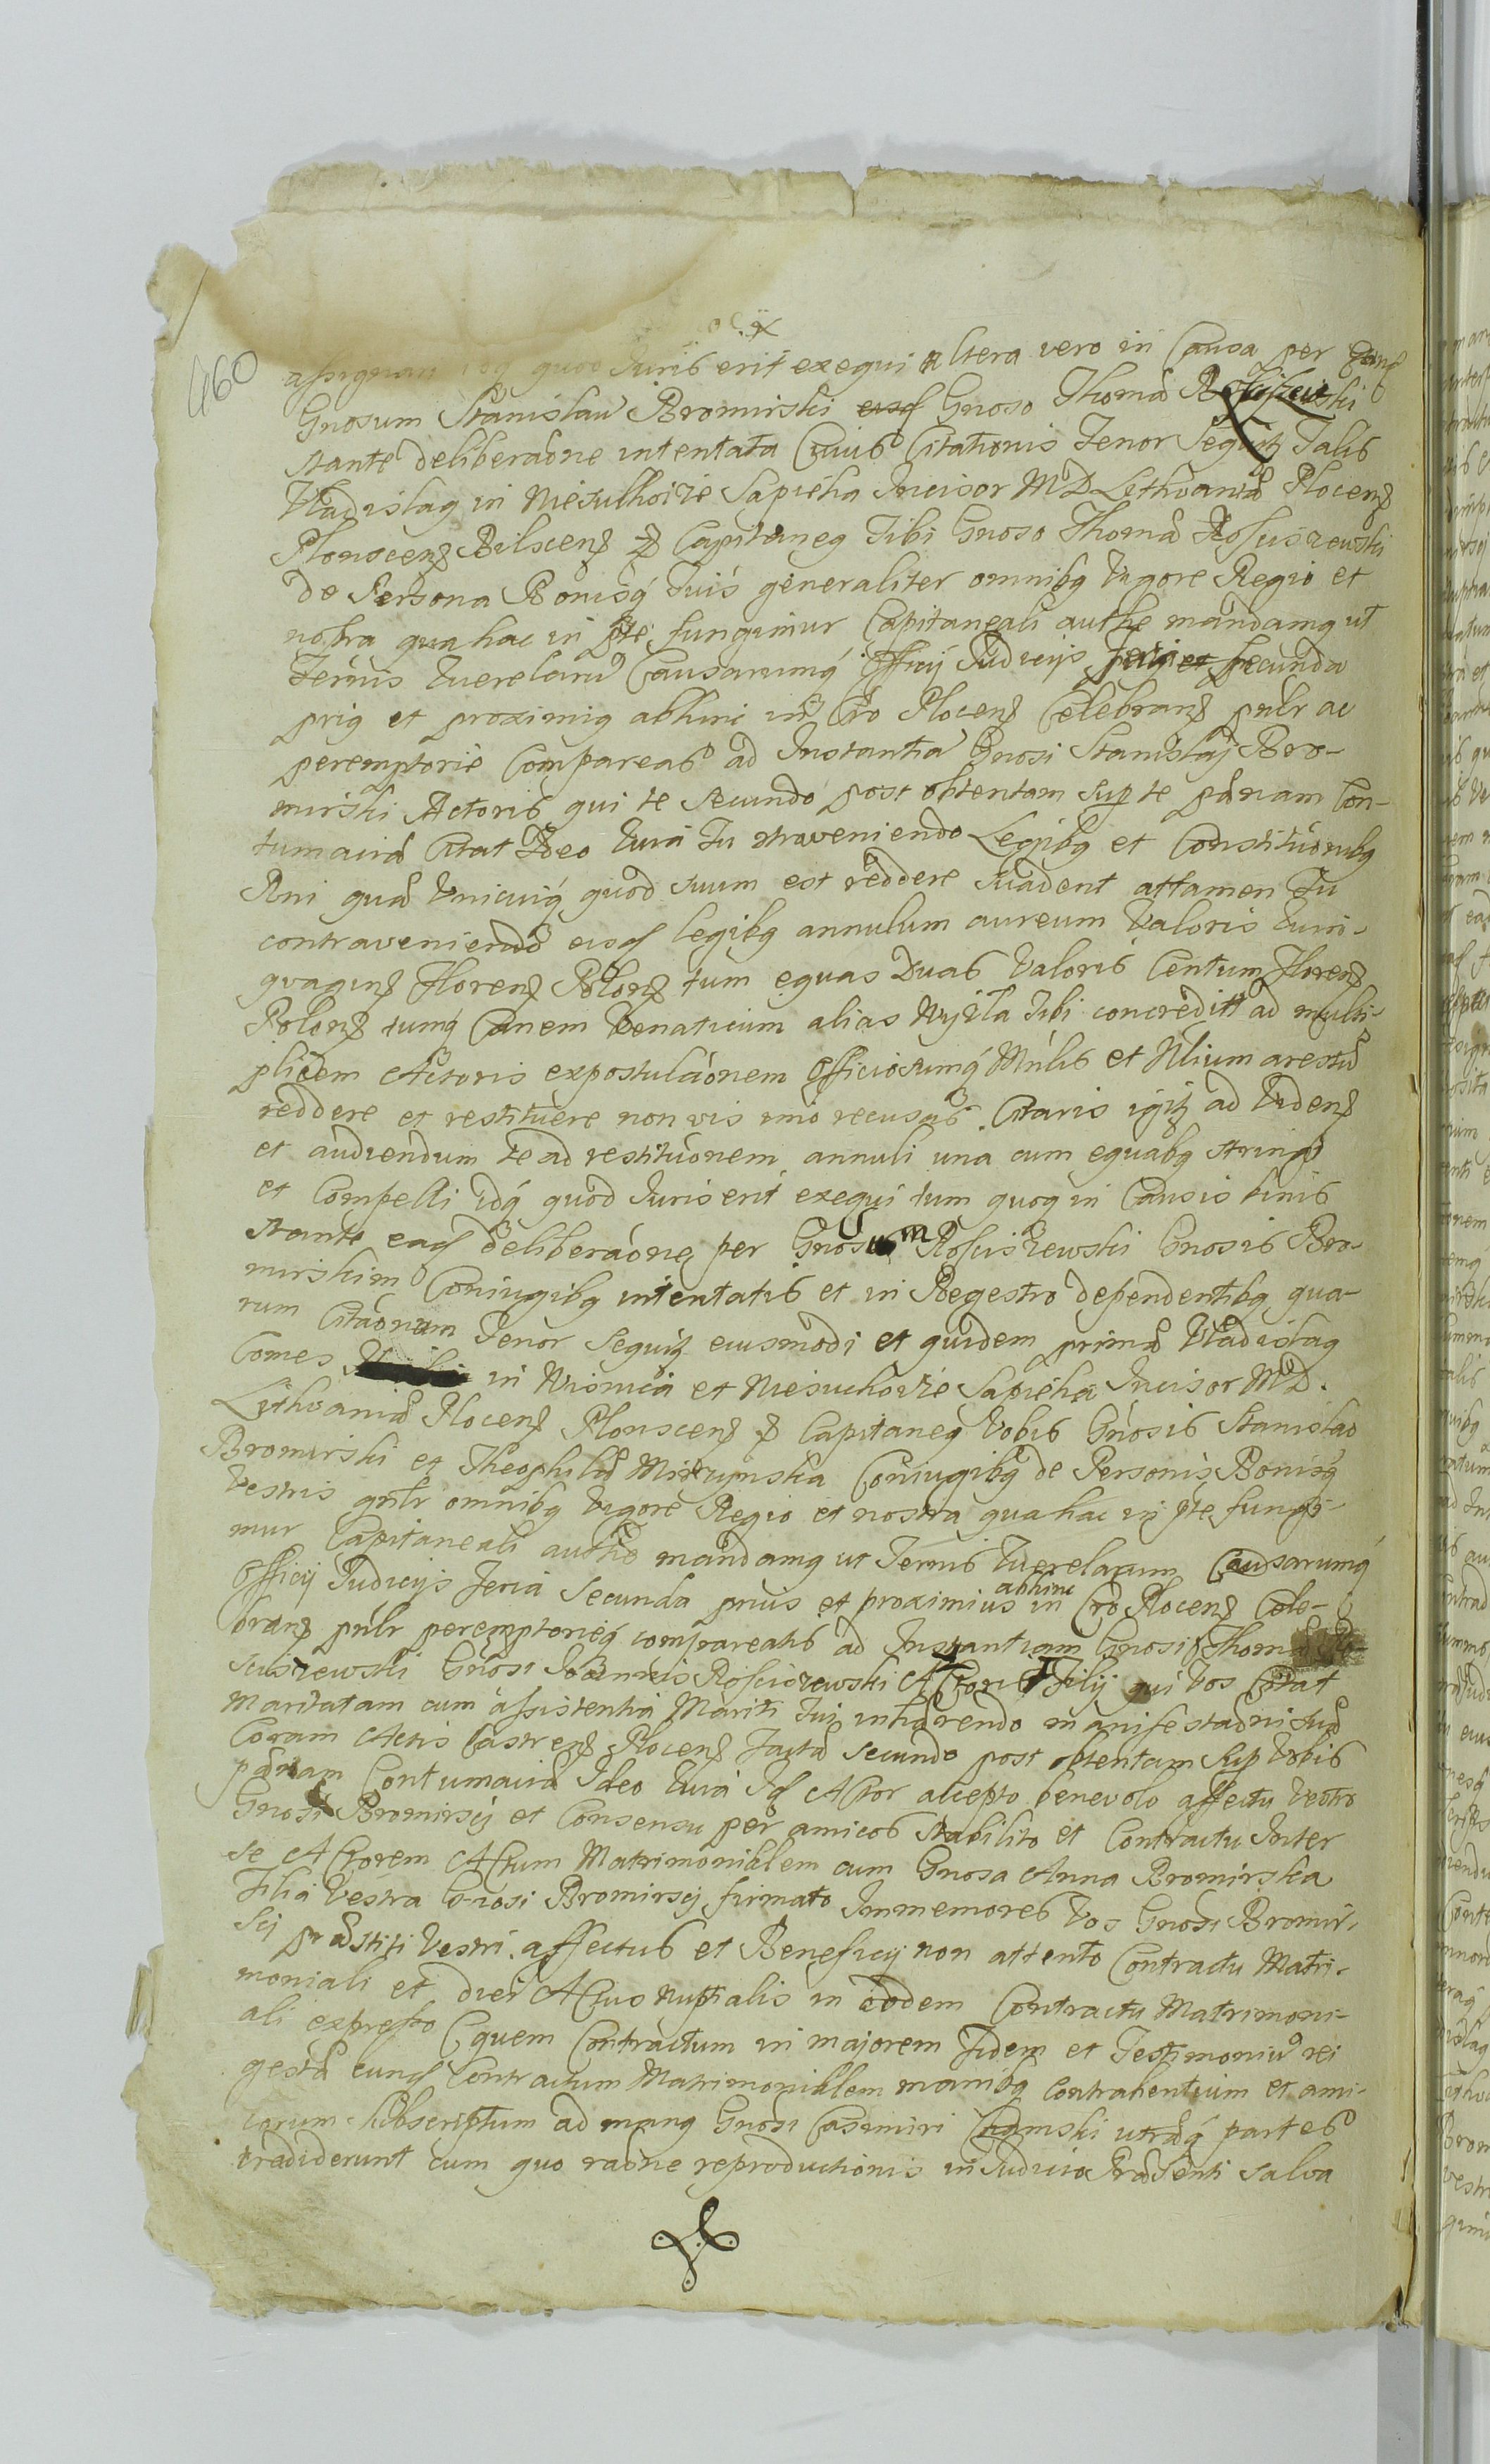 460
quod Juris erit exequi altera vero in Causa per
Gnosum Stanislaū Bromirski eusd Gnoso Thomæ Rosciszewski
stante deliberaōne intentata Cuius Citationis Tenor Sequitz Talis
Vladislaq in Niesuchoize Sapieha Incisor MD Lithvaniæ Plocenß
Plonscenß Bilscenß Capitaneq Tibi Gnoso Thomæ Rosciszewski
de Persona Bonisq́ Tuis generaliter omnibq Vigore Regio et
nostra qua hac in pte fungimur Capitaneali authe mandamq ut
Termis Querelarū Causarumq́ Officij Judicijs feria secunda
priq et proximiq abhinc in Cro Plocenß Celebranß pnlr ac
peremptorie Compareas ad Instantiā Gnosi Stanislaj Bro-
mirski Actoris qui te secundo post obtentam sup te pænam Con-
tumaciæ Citat Ideo Quia Tu contraveniendo Legibq et Constituōnibq
Rni quæ Unicuiq́ quod suum est reddere suadent attamen Tu
contraveniendo eisd legibq annulum aureum Valoris quin-
quaginß florenß Polonß tum equas Duas Valoris Centum florenß
Polonß tumq́ Canem Venaticum alias Wyżla Tibi concredit ad multi-
plicem Actoris expostulaōnem Officiosumq́ Mnlis et Nlium arestū
reddere et restituere non vis imo recusas. Citaris igitz ad Videnß
et audiendum te ad restituōnem annuli una cum equabq stringi
et Compelli idq́ quod Juris erit exequi tum quoq in Causis binis
stante ead deliberaōne per Gnosum Rosciszewski Gnosis Bro-
mirskim Coniugibq intentatis et in Regestro dependentibq qua-
rum Citaōnum Tenor Sequitz eiusmodi et quidem primæ Vladislaq
Comes in Wisnicia et Niesuchoize Sapieha Incisor MD.
Lithvaniæ Plocenß Plonscenß Capitaneq Vobis Gnosis Stanislao
Bromirski et Theophilæ Coniugibq de Personis Bonisq́
Vestris gnlr omnibq Vigore Regio et nostra qua hac in pte fungi-
mur Capitaneali authe mandamq ut Termis Querelarum Causarumq́
Officij Judicijs Feria Secunda prius et proximius abhinc in Cro Plocenß Cele-
branß pnlr peremptorieq́ compareatis ad Instantiam Gnosi Thomæ Ro-
sciszewski Gnosi Joannis Rosciszewski Actoris Filij qui Vos Citat
Maritatam cum assistentia Mariti Tui inhærendo manifestaōni suæ
Coram Actis Castrenß Plocenß factæ secundo post obtentam sup Vobis
pænam Contumaciæ Ideo Quia Id Actor accepto benevolo affectu Vestro
Gnosi Bromirscy et Consensu per amicos stabilito et Contractu Inter
se Actorem Actum Matrimonialem cum Gnosa Anna Bromirska
Filia Vestra Gnosi Bromirscy firmato Immemores Vos Gnosi Bromir-
scij præstiti Vestri affectus et Beneficij non attento Contractu Matri-
moniali et diei Actus Nuptialis in eodem Contractu Matrimoni-
ali expresso quem Contractum in majorem Fidem et Testimoniū rei
gestæ eund Contractum Matrimonialem manibq contrahentium et ami-
corum subscriptum ad manq Gnosi Casimiri utræq́ partes
tradiderunt cum quo raōne reproductionis in Judicio Præsenti salva